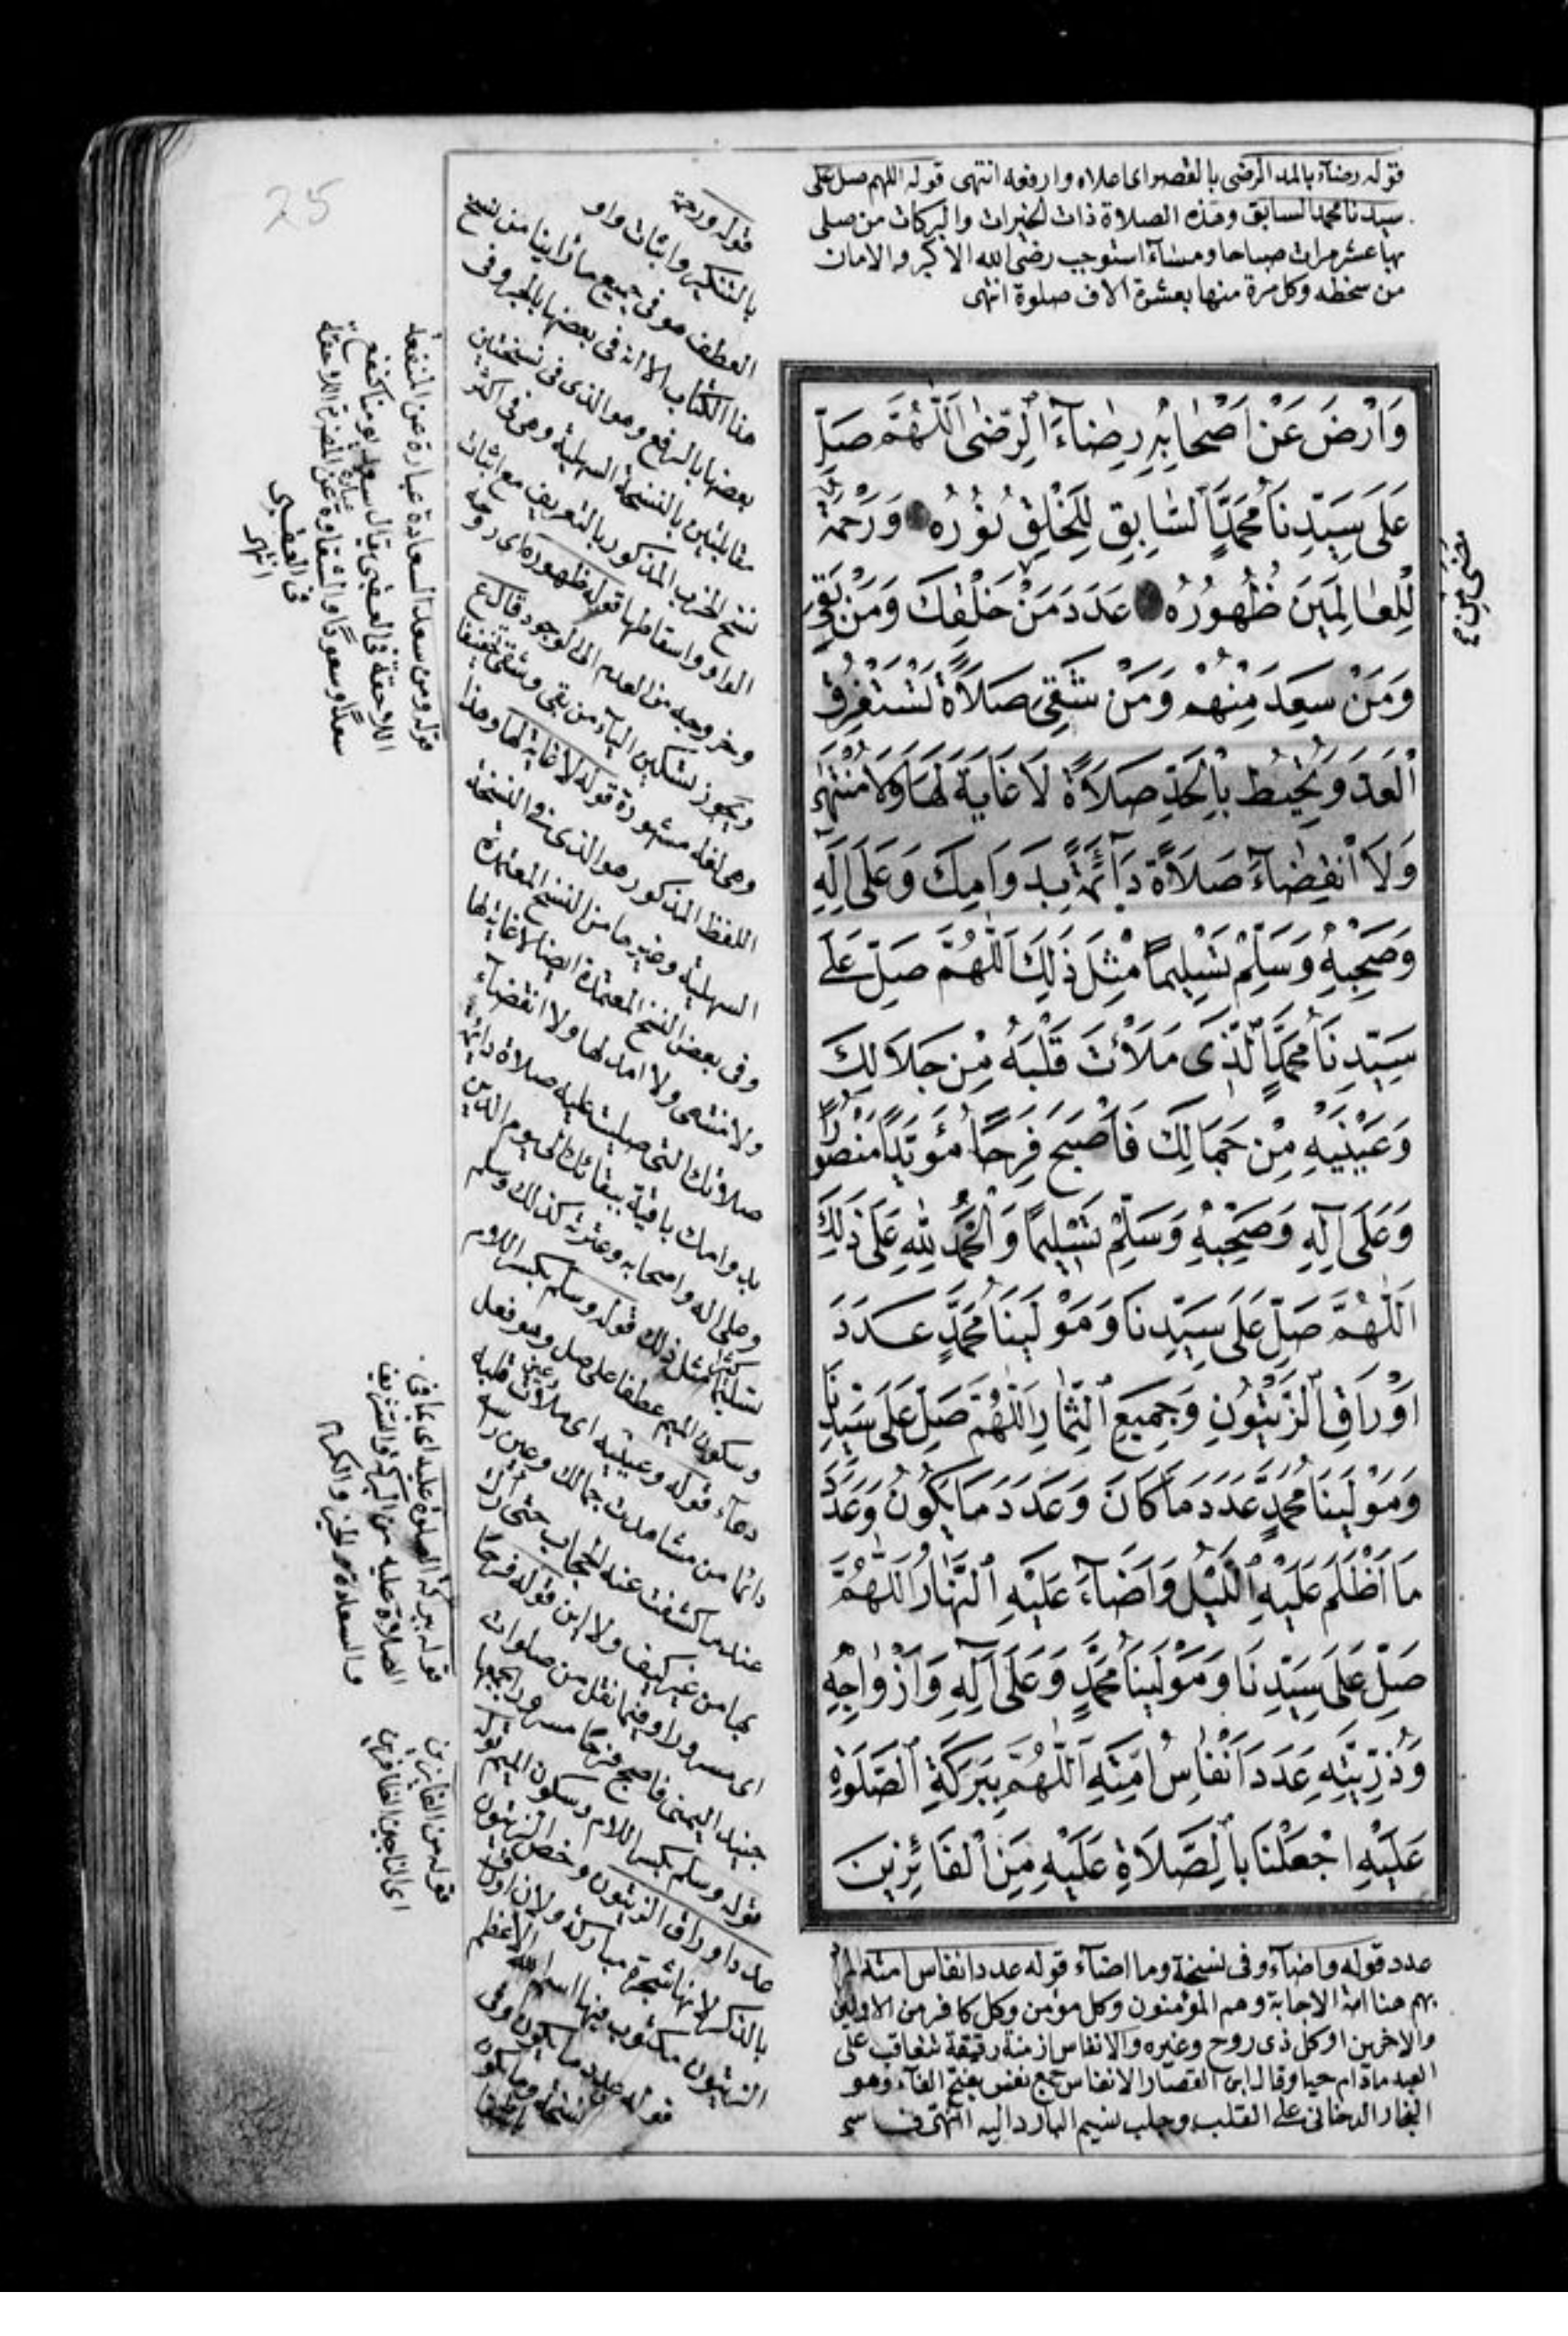 25
قوله رضآء بالمد الرضى بالقصر اى اعلاه وارفعه انتهى قوله اللهم صل على
سيدنا محمد السابق وهذه الصلاة ذات الخيرات والبركات من صلى
بها عشر مرات صباحا ومسآء استوجب رضى الله الاكبر والامان
من سخطه وكل مرة منها بعشرة الاف صلوة انتهى
وَارْضَ عَنْ اَصْحَابِهِ رِضَآءَ الرِّضٰى اَللّٰهُمَّ صَلِّ
عَلٰى سَيِّدِنَا مُحَمَّدٍ السَّابِقِ لِلْخَلْقِ نُوْرُهُ وَرَحْمَةٌ
لِلْعَالَمِينَ ظُهُورُهُ عَدَدَ مَنْ خَلْقِكَ وَمَنْ بَقِىَ
وَمَنْ سَعِدَ مِنْهُمْ وَمَنْ شَقِىَ صَلَاةً تَسْتَغْرِقُ
الْعَدَّ وَتُحِيطُ بِالْحَدِّ صَلَاةً لَا غَايَةَ لَهَا وَلَا مُنْتَهٰى
وَلَا انْقِضَآءَ صَلَاةً دَآئِمَةً بِدَوَامِكَ وَعَلٰى اٰلِهِ
وَصَحْبِهِ وَسَلِّمْ تَسْلِيمًا مِثْلَ ذٰلِكَ اَللّٰهُمَّ صَلِّ عَلٰى
سَيِّدِنَا مُحَمَّدٍ الَّذِى مَلَأْتَ قَلْبَهُ مِنْ جَلَالِكَ
وَعَيْنَيْهِ مِنْ جَمَالِكَ فَاَصْبَحَ فَرِحًا مُؤَيَّدًا مَنْصُورًا
وَعَلٰى آلِهِ وَصَحْبِهِ وَسَلِّمْ تَسْلِيمًا وَالْحَمْدُ لِلّٰهِ عَلٰى ذٰلِكَ
اَللّٰهُمَّ صَلِّ عَلٰى سَيِّدِنَا وَمَوْلٰينَا مُحَمَّدٍ عَدَدَ
اَوْرَاقِ الزَّيْتُونِ وَجَمِيعِ الثِّمَارِ اَللّٰهُمَّ صَلِّ عَلٰى سَيِّدِنَا
وَمَوْلٰينَا مُحَمَّدٍ عَدَدَ مَا كَانَ وَعَدَدَ مَا يَكُونُ وَعَدَدَ
مَا اَظْلَمَ عَلَيْهِ اللَّيْلُ وَاَضَآءَ عَلَيْهِ النَّهَارُ اَللّٰهُمَّ
صَلِّ عَلٰى سَيِّدِنَا وَمَوْلٰينَا مُحَمَّدٍ وَعَلٰى آلِهِ وَاَزْوَاجِهِ
وَذُرِّيَّتِهِ عَدَدَ اَنْفَاسِ اُمَّتِهِ اَللّٰهُمَّ بِبَرَكَةِ الصَّلٰوةِ
عَلَيْهِ اجْعَلْنَا بِالصَّلَاةِ عَلَيْهِ مِنَ الْفَائِزِينَ
عدد قوله واضآء وفى نسخة وما اضآء قوله عدد انفاس امته
بهم هنا امة الاجابة وهم المؤمنون وكل مؤمن وكل كافر من الاولين
والاخرين او كل ذى روح وغيره والانفاس ازمنة رقيقة تتعاقب على
العبد مادام حيا وقال ابن القصار الانفاس جمع نفس بفتح الفآء وهو
البخار الدخانى على القلب وجلب نسيم البارد اليه انتهى
قوله ورحمة
بالتنكير واثبات واو
العطف هو فى جميع ما رأينا من نسخ
هذا الكتاب الا انه فى بعضها بالجر وفى
بعضها بالرفع وهو الذى فى نسختين
مقابلتين بالنسخة السهلية وهى فى اكثر
نسخ الحزب المذكور بالتعريف مع اثبات
الواو واسقاطها قوله ظهوره اى روحه
وخروجه من العدم الى الوجود قال ع
ويجوز تسكين اليآء من بقى وشقى تخفيفا
وهى لغة مشهورة قوله لا غاية لها وهذا
اللفظ المذكور هو الذى فى النسخة
السهلية وغيرها من النسخ المعتمدة
وفى بعض النسخ المعتمدة ايضا لا غاية لها
ولا منتهى ولا امد لها ولا انقضآء
صلاتك التى صليت عليه صلاة دائمة
بدوامك باقية ببقائك الى يوم الدين
وعلى اله واصحابه وعترته كذلك وسلم
تسليما مثل ذلك قوله وسلم بكسر اللام
وسكون الميم عطفا على صل وهو فعل
دعآء قوله وعينيه اى ملأت قلبه
دائما من مشاهدت جمالك وعين راسه
عندما كشفت عنه الحجاب حتى رآك
بها من غير كيف ولا اين قوله فرحا
اى مسرورا وفيما نقل من صلوات
جنيد اليمنى فاصبح فرحا مسرورا
قوله وسلم بكسر اللام وسكون الميم قوله
عدد اوراق الزيتون وخص الزيتون
بالذكر لانها شجرة مباركة ولان اوراق
الزيتون مكتوب فيها اسم الله الاعظم
قوله عدد ما يكون وفى
نسخة وما يكون
قوله ومن سعد السعادة عبارة عن المنفعة
اللاحقة فى العقبى يقال سعد يومنا كنفع
سعدا وسعودا والشقاوة عن المضرة اللاحقة
فى العقبى
انتهى
قوله ببركة الصلوة عليه اى بما فى
الصلاة عليه من البركة والتشريف
والسعادة والخير والكرم
قوله من الفايزين
اى الناجين الظافرين